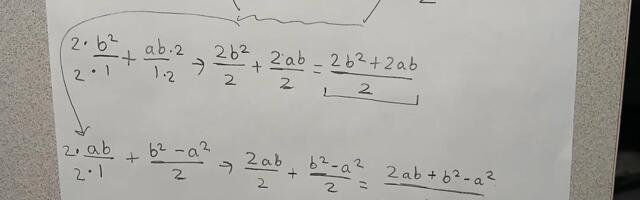 2
2·b²/2·1 + ab·2/1·2 → 2b²/2 + 2ab/2 = 2b²+2ab/2
2·ab/2·1 + b²-a²/2 → 2ab/2 + b²-a²/2 = 2ab+b²-a²